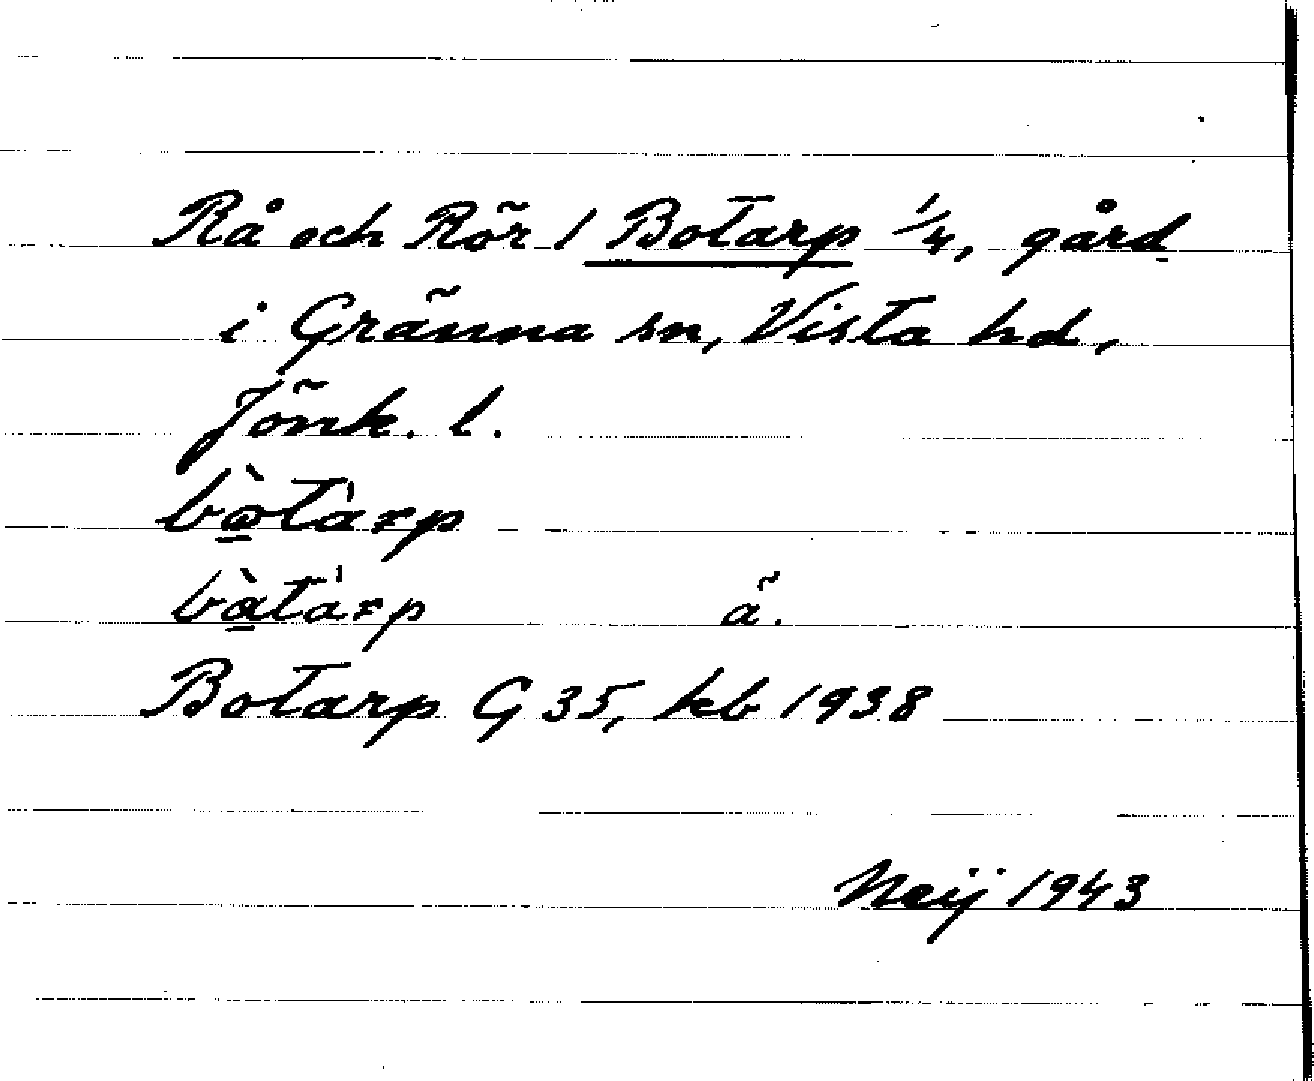 Rå och Rör / Botarp 1/4, gård
i Gränna sn, Vista hd,
Jönk. l.
bò̱tàrp
bà̱tàrp ä.
Botarp G 35, kb 1938
Neij 1943